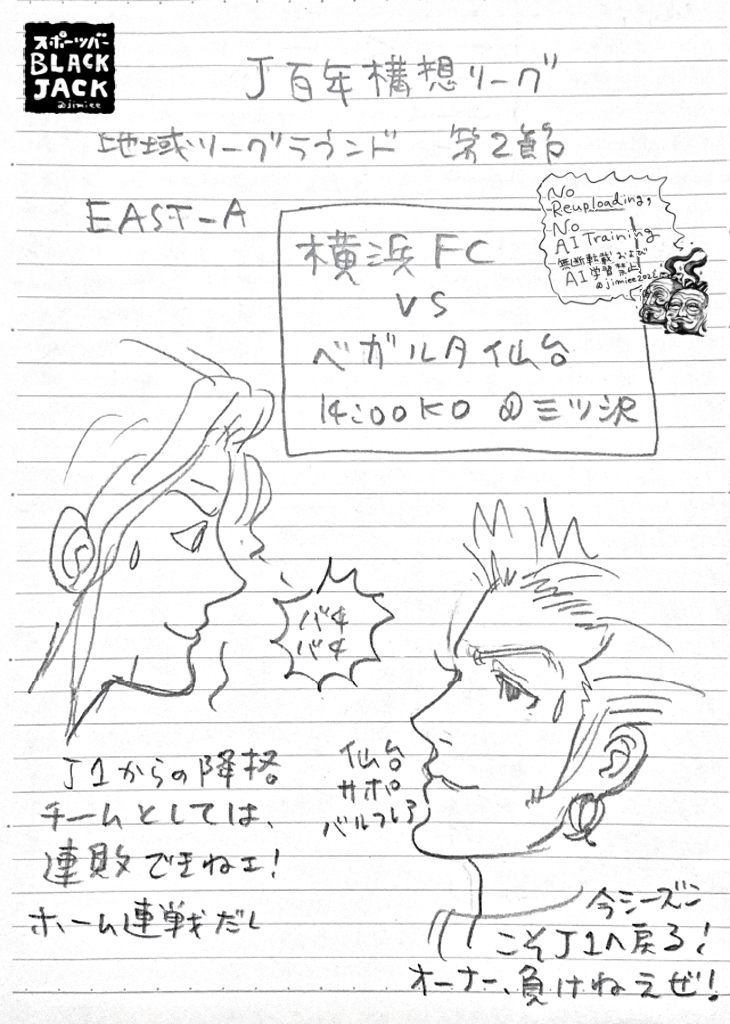 スポーツバー
BLACK
JACK
@jimiee
J百年構想リーグ
地域リーグラウンド 第2節
EAST-A
横浜FC
VS
ベガルタ仙台
14:00KO @三ツ沢
No
Reuploading,
No
AI Training
無断転載および
AI学習禁止
@jimiee2026
バチ
バチ
J1からの降格
チームとしては、
連敗できねェ!
ホーム連戦だし
仙台
サポ
バルフレア
今シーズン
こそJ1へ戻る!
オーナー、負けねえぜ!